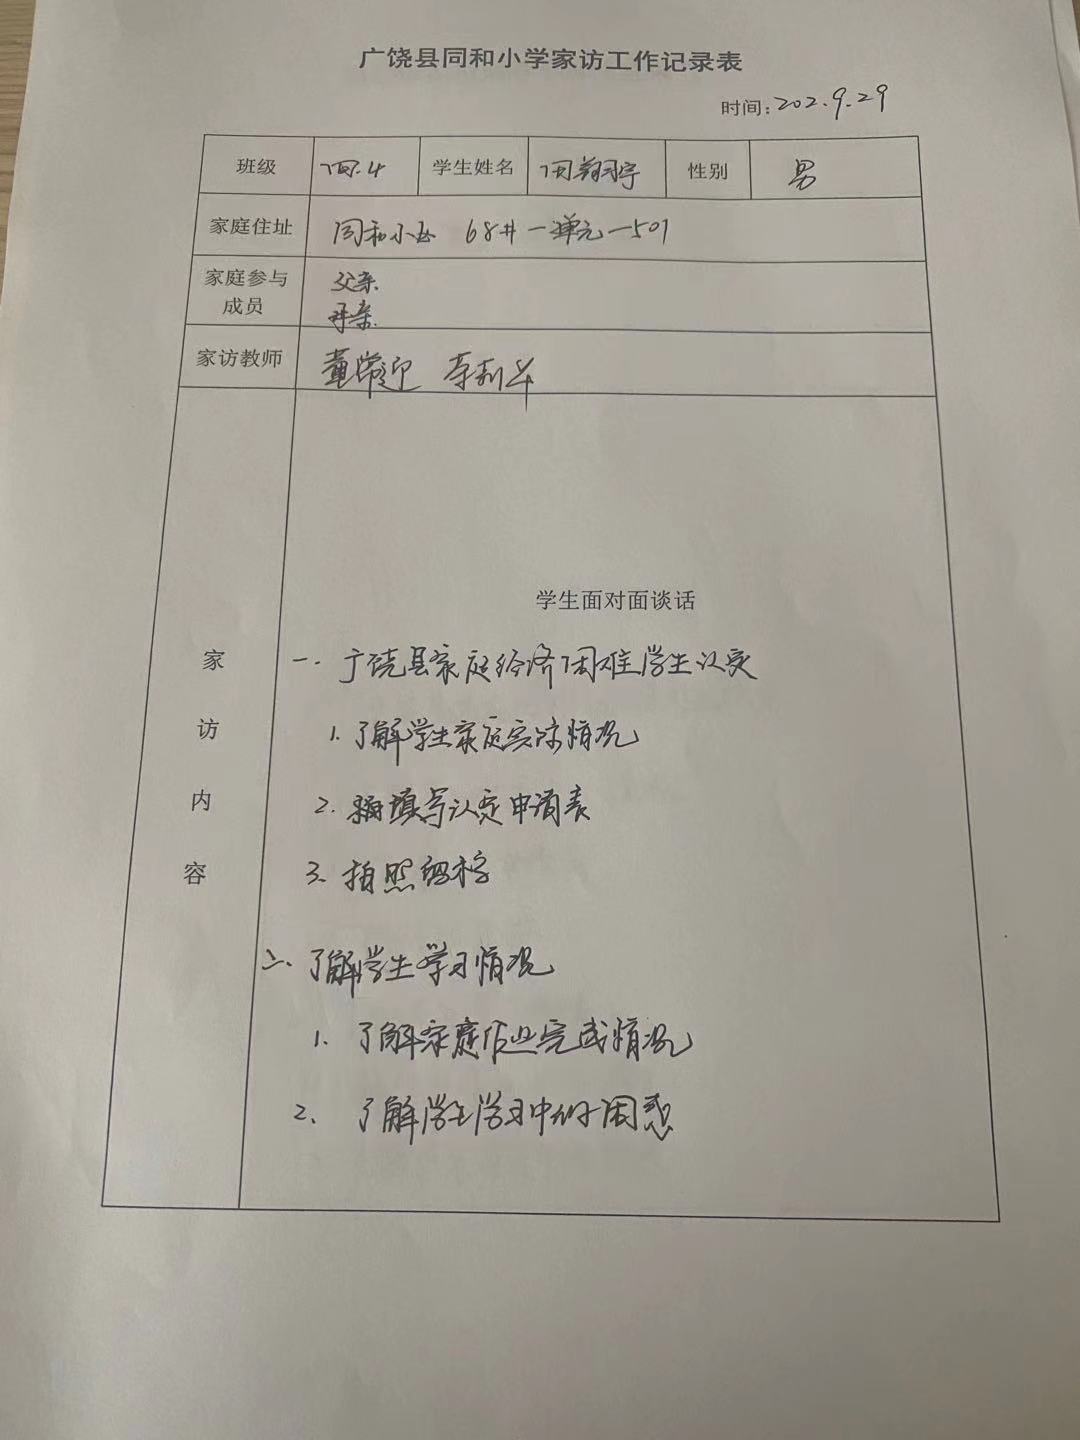 广饶县同和小学家访工作记录表
时间:202.9.29
班级 四.4 学生姓名 周翔宇 性别 男
家庭住址 同和小区 68# 一单元-501
家庭参与成员 父亲
母亲
家访教师 董常迎
学生面对面谈话
家访内容
一. 广饶县家庭经济困难学生认定
1. 了解学生家庭实际情况
2. 填写认定申请表
3. 拍照
二. 了解学生学习情况
1. 了解家庭作业完成情况
2. 了解学生学习中的困惑